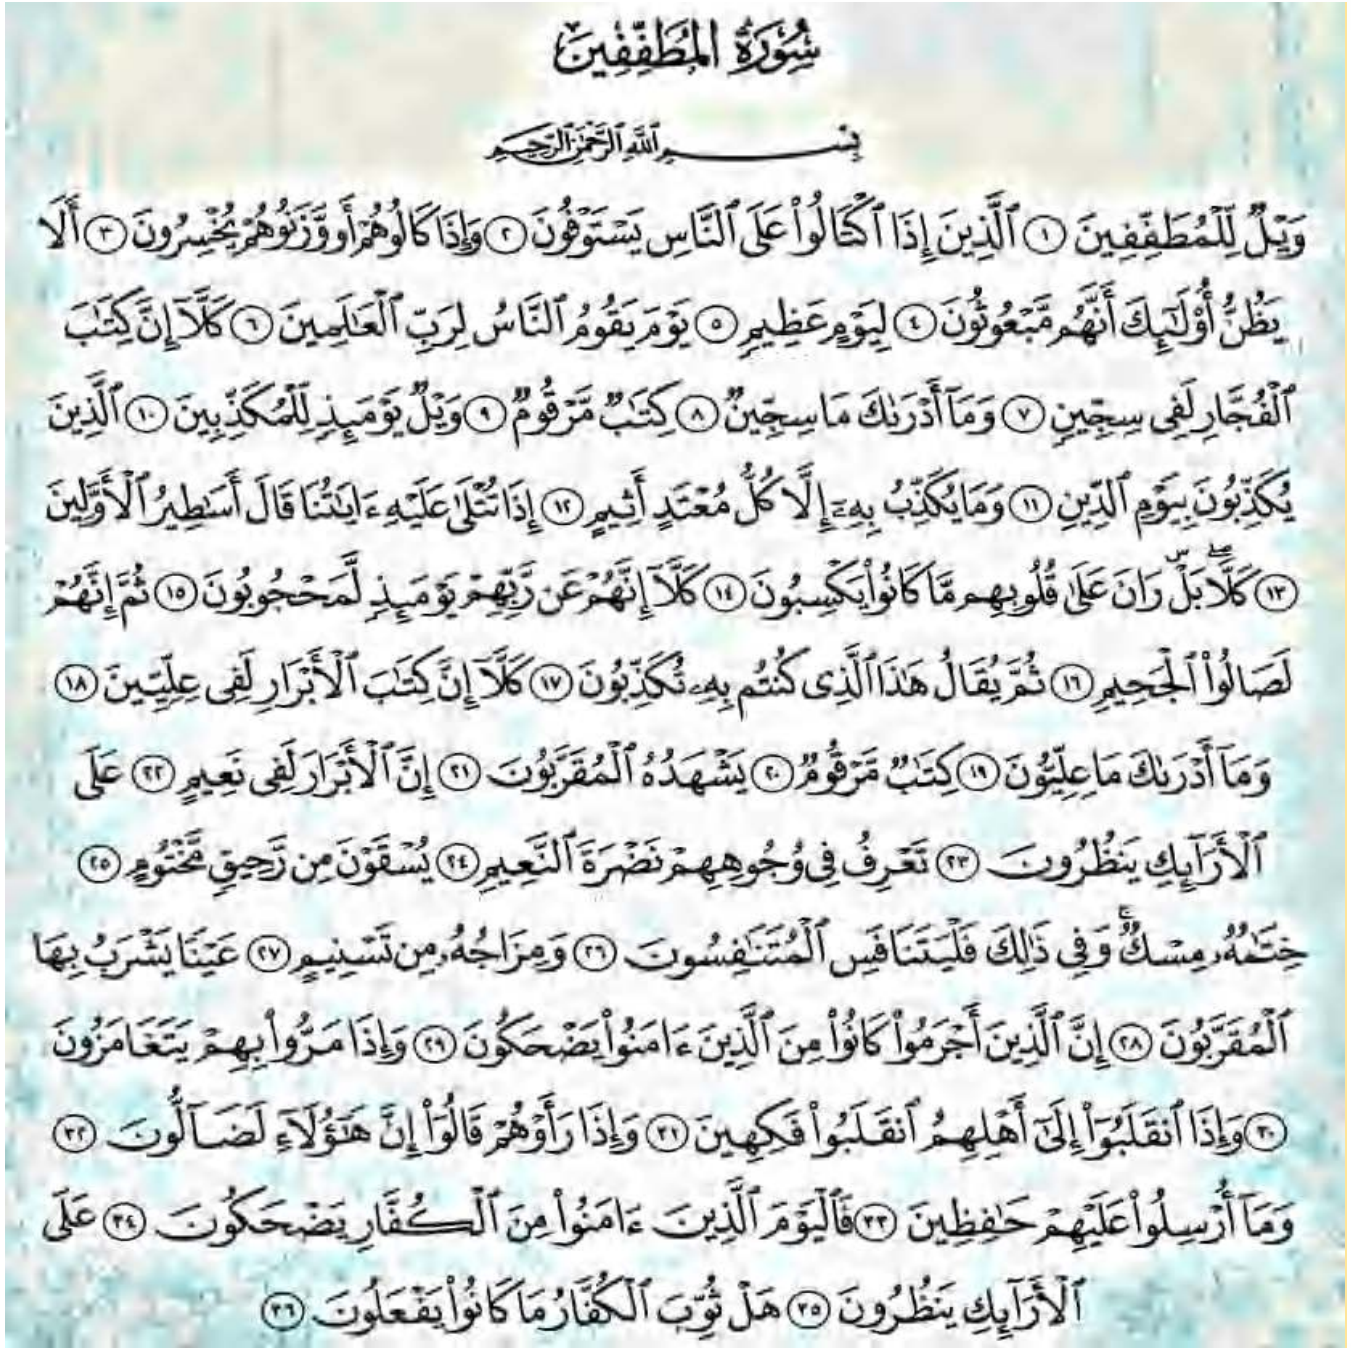 سُورَةُ المُطَفِّفِينَ
بِسْمِ ٱللَّهِ ٱلرَّحْمَٰنِ ٱلرَّحِيمِ
وَيْلٌ لِّلْمُطَفِّفِينَ ١ ٱلَّذِينَ إِذَا ٱكْتَالُوا۟ عَلَى ٱلنَّاسِ يَسْتَوْفُونَ ٢ وَإِذَا كَالُوهُمْ أَو وَّزَنُوهُمْ يُخْسِرُونَ ٣ أَلَا
يَظُنُّ أُو۟لَٰٓئِكَ أَنَّهُم مَّبْعُوثُونَ ٤ لِيَوْمٍ عَظِيمٍ ٥ يَوْمَ يَقُومُ ٱلنَّاسُ لِرَبِّ ٱلْعَٰلَمِينَ ٦ كَلَّآ إِنَّ كِتَٰبَ
ٱلْفُجَّارِ لَفِى سِجِّينٍ ٧ وَمَآ أَدْرَىٰكَ مَا سِجِّينٌ ٨ كِتَٰبٌ مَّرْقُومٌ ٩ وَيْلٌ يَوْمَئِذٍ لِّلْمُكَذِّبِينَ ١٠ ٱلَّذِينَ
يُكَذِّبُونَ بِيَوْمِ ٱلدِّينِ ١١ وَمَا يُكَذِّبُ بِهِۦٓ إِلَّا كُلُّ مُعْتَدٍ أَثِيمٍ ١٢ إِذَا تُتْلَىٰ عَلَيْهِ ءَايَٰتُنَا قَالَ أَسَٰطِيرُ ٱلْأَوَّلِينَ
١٣ كَلَّا ۖ بَلْ ۜ رَانَ عَلَىٰ قُلُوبِهِم مَّا كَانُوا۟ يَكْسِبُونَ ١٤ كَلَّآ إِنَّهُمْ عَن رَّبِّهِمْ يَوْمَئِذٍ لَّمَحْجُوبُونَ ١٥ ثُمَّ إِنَّهُمْ
لَصَالُوا۟ ٱلْجَحِيمِ ١٦ ثُمَّ يُقَالُ هَٰذَا ٱلَّذِى كُنتُم بِهِۦ تُكَذِّبُونَ ١٧ كَلَّآ إِنَّ كِتَٰبَ ٱلْأَبْرَارِ لَفِى عِلِّيِّينَ ١٨
وَمَآ أَدْرَىٰكَ مَا عِلِّيُّونَ ١٩ كِتَٰبٌ مَّرْقُومٌ ٢٠ يَشْهَدُهُ ٱلْمُقَرَّبُونَ ٢١ إِنَّ ٱلْأَبْرَارَ لَفِى نَعِيمٍ ٢٢ عَلَى
ٱلْأَرَآئِكِ يَنظُرُونَ ٢٣ تَعْرِفُ فِى وُجُوهِهِمْ نَضْرَةَ ٱلنَّعِيمِ ٢٤ يُسْقَوْنَ مِن رَّحِيقٍ مَّخْتُومٍ ٢٥
خِتَٰمُهُۥ مِسْكٌ ۚ وَفِى ذَٰلِكَ فَلْيَتَنَافَسِ ٱلْمُتَنَٰفِسُونَ ٢٦ وَمِزَاجُهُۥ مِن تَسْنِيمٍ ٢٧ عَيْنًا يَشْرَبُ بِهَا
ٱلْمُقَرَّبُونَ ٢٨ إِنَّ ٱلَّذِينَ أَجْرَمُوا۟ كَانُوا۟ مِنَ ٱلَّذِينَ ءَامَنُوا۟ يَضْحَكُونَ ٢٩ وَإِذَا مَرُّوا۟ بِهِمْ يَتَغَامَزُونَ
٣٠ وَإِذَا ٱنقَلَبُوٓا۟ إِلَىٰٓ أَهْلِهِمُ ٱنقَلَبُوا۟ فَكِهِينَ ٣١ وَإِذَا رَأَوْهُمْ قَالُوٓا۟ إِنَّ هَٰٓؤُلَآءِ لَضَآلُّونَ ٣٢
وَمَآ أُرْسِلُوا۟ عَلَيْهِمْ حَٰفِظِينَ ٣٣ فَٱلْيَوْمَ ٱلَّذِينَ ءَامَنُوا۟ مِنَ ٱلْكُفَّارِ يَضْحَكُونَ ٣٤ عَلَى
ٱلْأَرَآئِكِ يَنظُرُونَ ٣٥ هَلْ ثُوِّبَ ٱلْكُفَّارُ مَا كَانُوا۟ يَفْعَلُونَ ٣٦